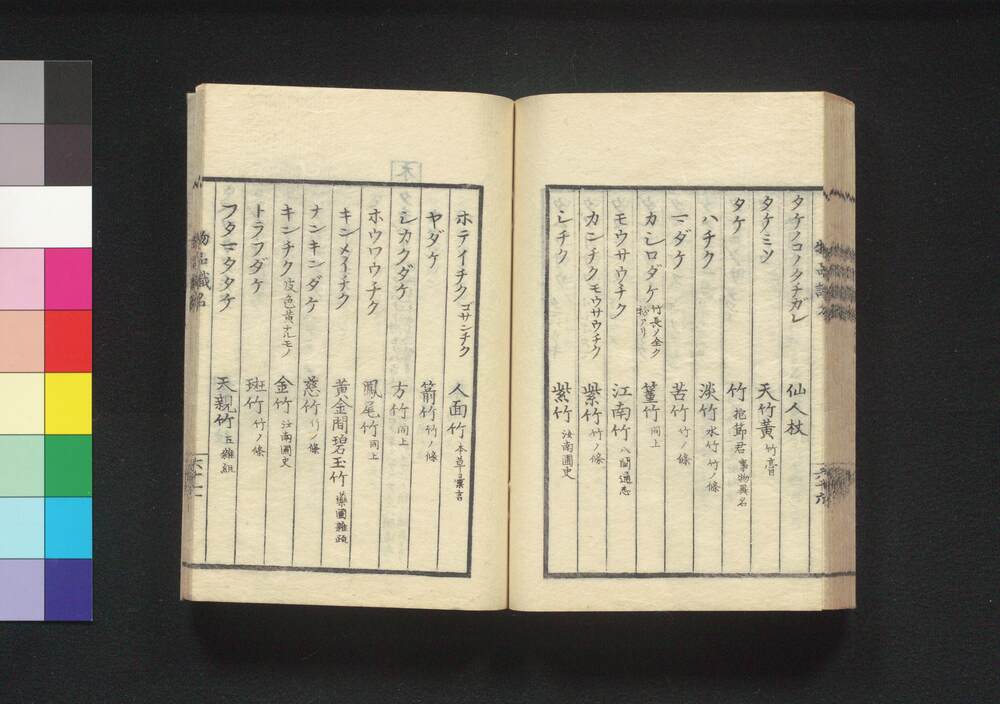 タケノコノタチガレ 仙人杖
タケミソ 天竹黄 竹膏
タケ 竹 抱節君 事物異名
ハチク 淡竹 水竹 竹ノ條
マダケ 苦竹 竹ノ條
カシロダケ 竹長ノ全ク 粉アリ 䈽竹 同上
モウサウチク 江南竹 八閩通志
カンチクモウサウチク 紫竹 竹ノ條
シチク 紫竹 汝南圃史
ホテイチク ゴサンチク 人面竹 本草彙言
ヤダケ 箭竹 竹ノ條
シカクダケ 方竹 同上
ホウワウチク 鳳尾竹 同上
キンメイチク 黄金間碧玉竹 藥圃雜疏
ナンキンダケ 慈竹 竹ノ條
キンチク 皮色黄ナルモノ 金竹 汝南圃史
トラフダケ 斑竹 竹ノ條
フタマタタケ 天親竹 五雜組
物品識名